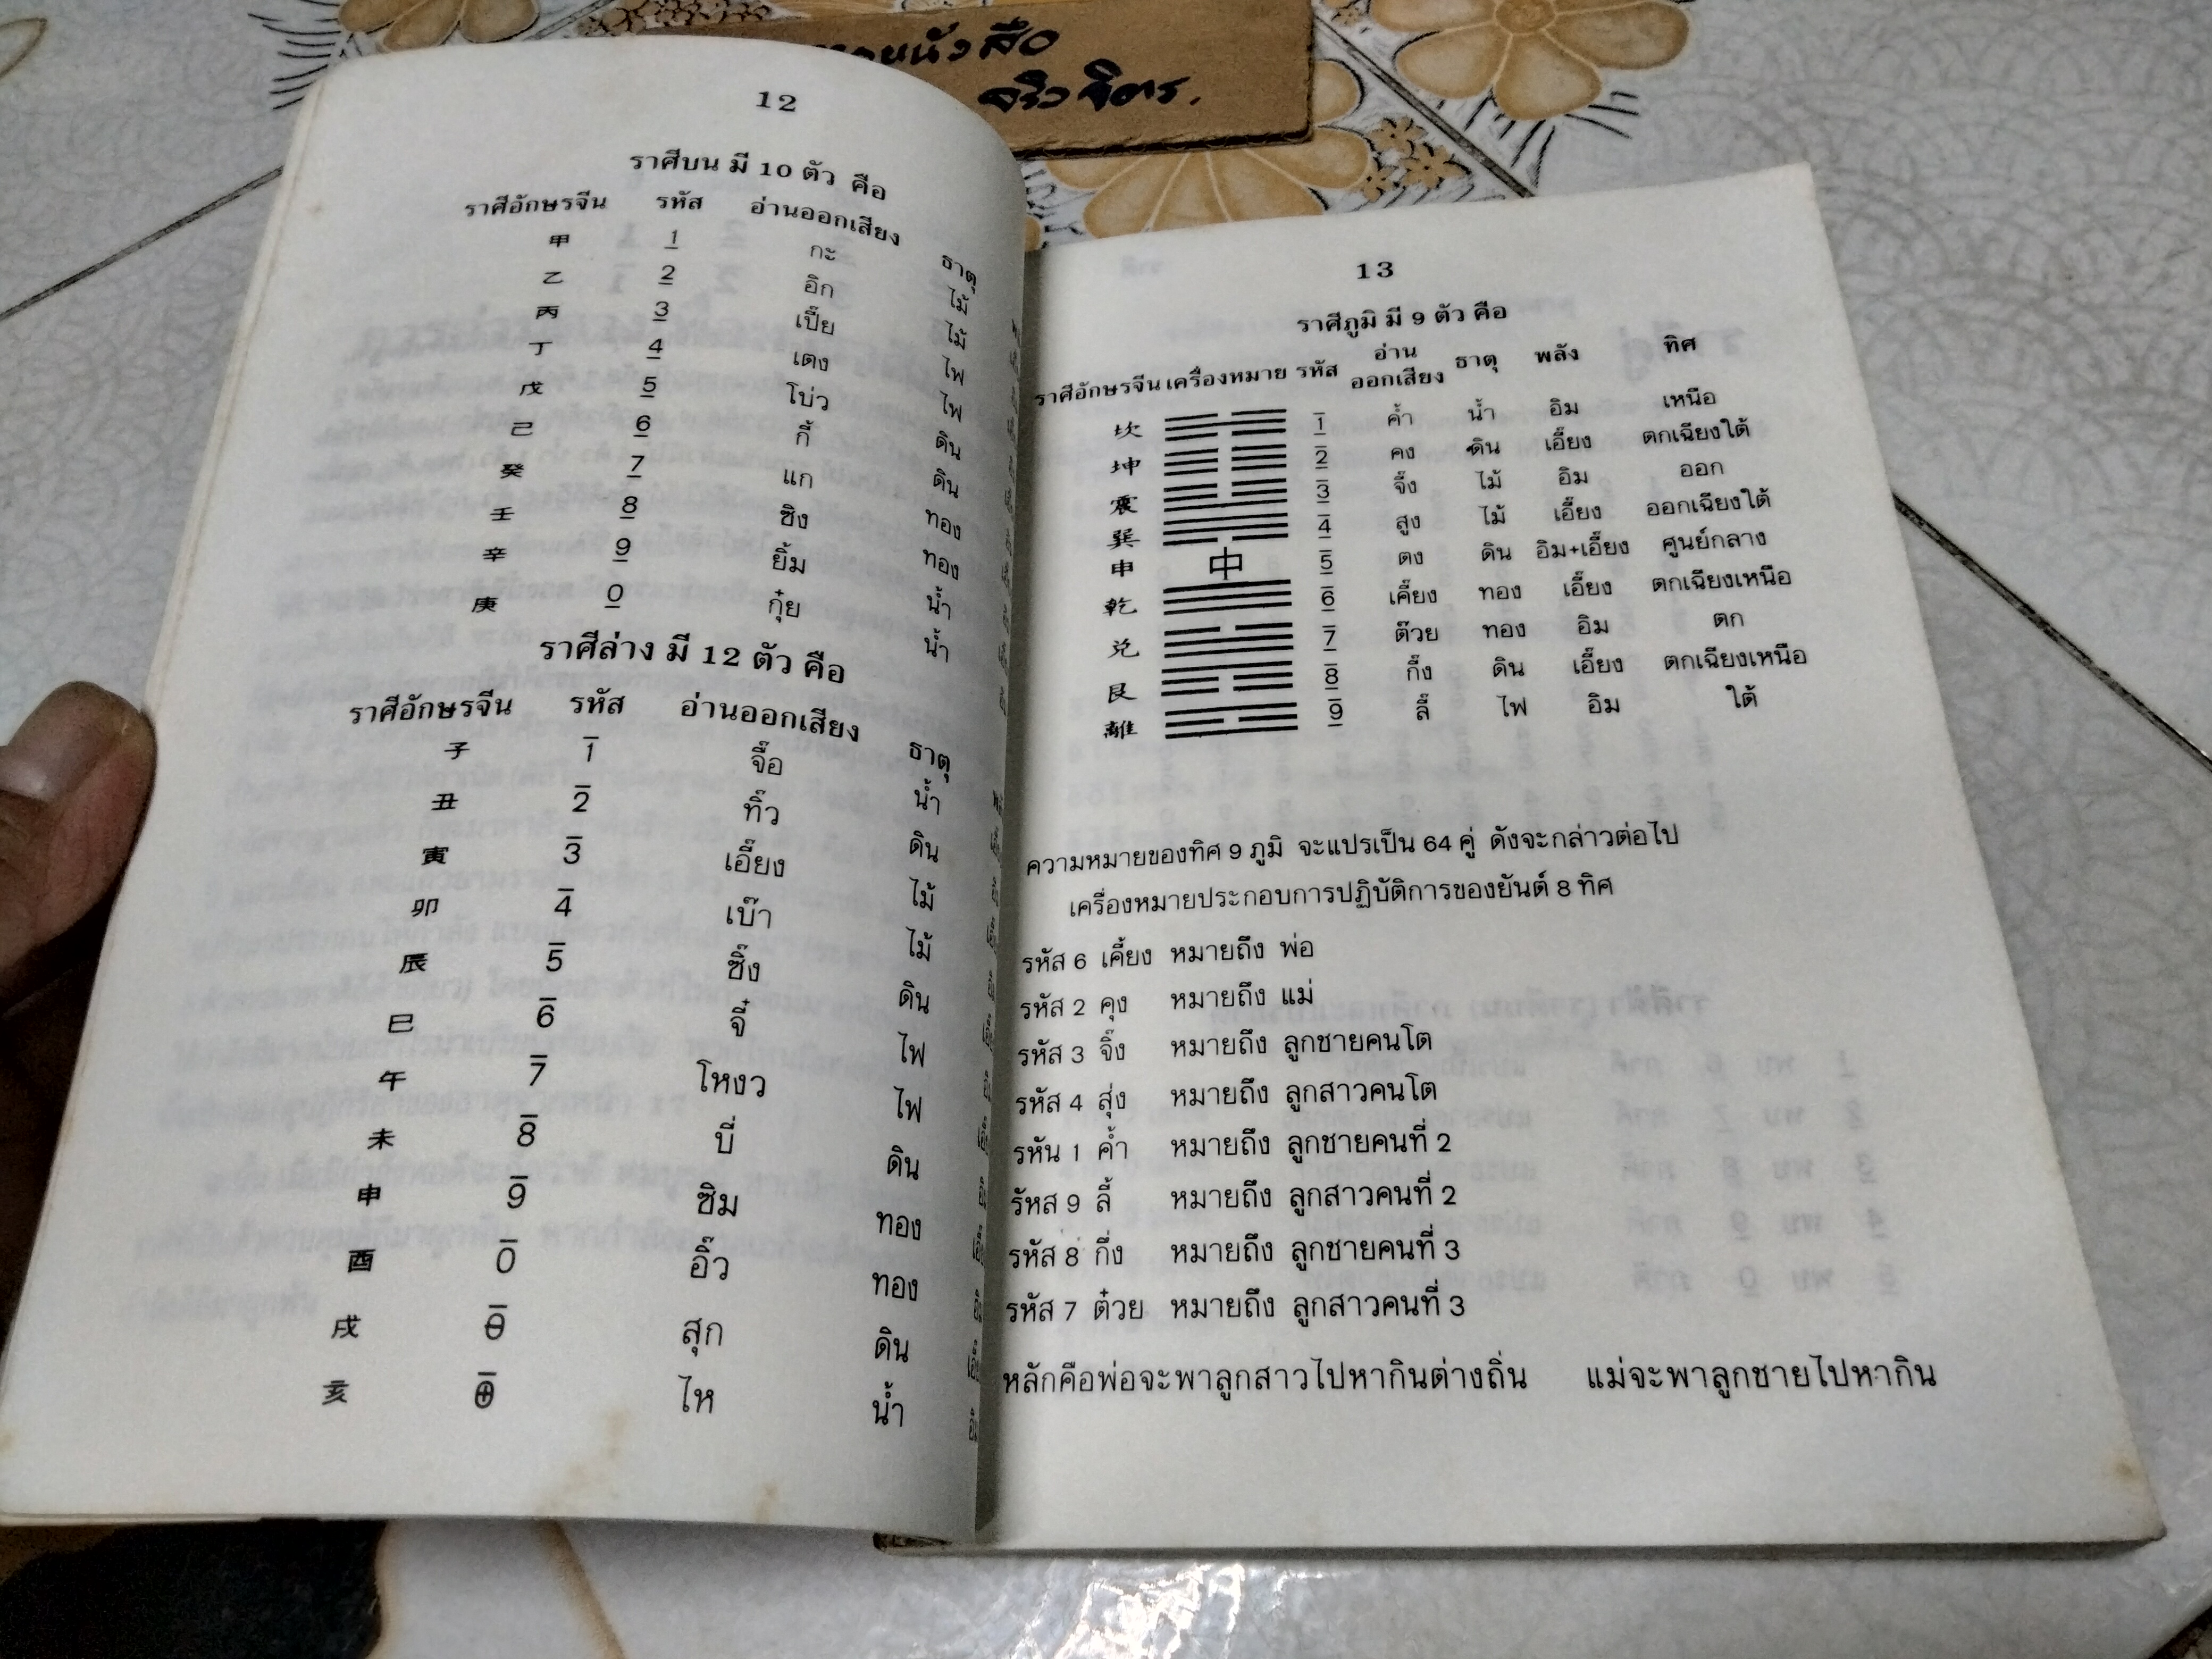 หนังสือ
จริง จิตร.
12
ราศีบน มี 10 ตัว คือ
ราศีอักษรจีน รหัส อ่านออกเสียง ธาตุ
甲 1 กะ ไม้
乙 2 อิก ไม้
丙 3 เปี๊ย ไฟ
丁 4 เตง ไฟ
戊 5 โบ่ว ดิน
己 6 กี้ ดิน
癸 7 แก ทอง
壬 8 ซิง ทอง
辛 9 ยิ้ม น้ำ
庚 0 กุ๋ย น้ำ
ราศีล่าง มี 12 ตัว คือ
ราศีอักษรจีน รหัส อ่านออกเสียง ธาตุ
子 1 จื๊อ น้ำ
丑 2 ทิ๊ว ดิน
寅 3 เอี๊ยง ไม้
卯 4 เบ๊า ไม้
辰 5 ซิ๊ง ดิน
巳 6 จี๋ ไฟ
午 7 โหงว ไฟ
未 8 บี่ ดิน
申 9 ซิม ทอง
酉 0 อิ๊ว ทอง
戌 θ สุก ดิน
亥 ⊕ ไห น้ำ
13
ราศีภูมิ มี 9 ตัว คือ
ราศีอักษรจีน เครื่องหมาย รหัส อ่านออกเสียง ธาตุ พลัง ทิศ
坎 1 ค้ำ น้ำ อิม เหนือ
坤 2 คง ดิน เอี๊ยง ตกเฉียงใต้
震 3 จิ๊ง ไม้ อิม ออก
巽 4 สูง ไม้ เอี๊ยง ออกเฉียงใต้
申 中 5 ตง ดิน อิม+เอี๊ยง ศูนย์กลาง
乾 6 เคี๊ยง ทอง เอี๊ยง ตกเฉียงเหนือ
兑 7 ต๊วย ทอง อิม ตก
艮 8 กึ๊ง ดิน เอี๊ยง ตกเฉียงเหนือ
離 9 ลี้ ไฟ อิม ใต้
ความหมายของทิศ 9 ภูมิ จะแปรเป็น 64 คู่ ดังจะกล่าวต่อไป
เครื่องหมายประกอบการปฏิบัติการของยันต์ 8 ทิศ
รหัส 6 เคี้ยง หมายถึง พ่อ
รหัส 2 คุง หมายถึง แม่
รหัส 3 จิ๊ง หมายถึง ลูกชายคนโต
รหัส 4 สุ่ง หมายถึง ลูกสาวคนโต
รหัน 1 ค้ำ หมายถึง ลูกชายคนที่ 2
รัหส 9 ลี้ หมายถึง ลูกสาวคนที่ 2
รหัส 8 กึ่ง หมายถึง ลูกชายคนที่ 3
รหัส 7 ต๋วย หมายถึง ลูกสาวคนที่ 3
หลักคือพ่อจะพาลูกสาวไปหากินต่างถิ่น แม่จะพาลูกชายไปหากิน